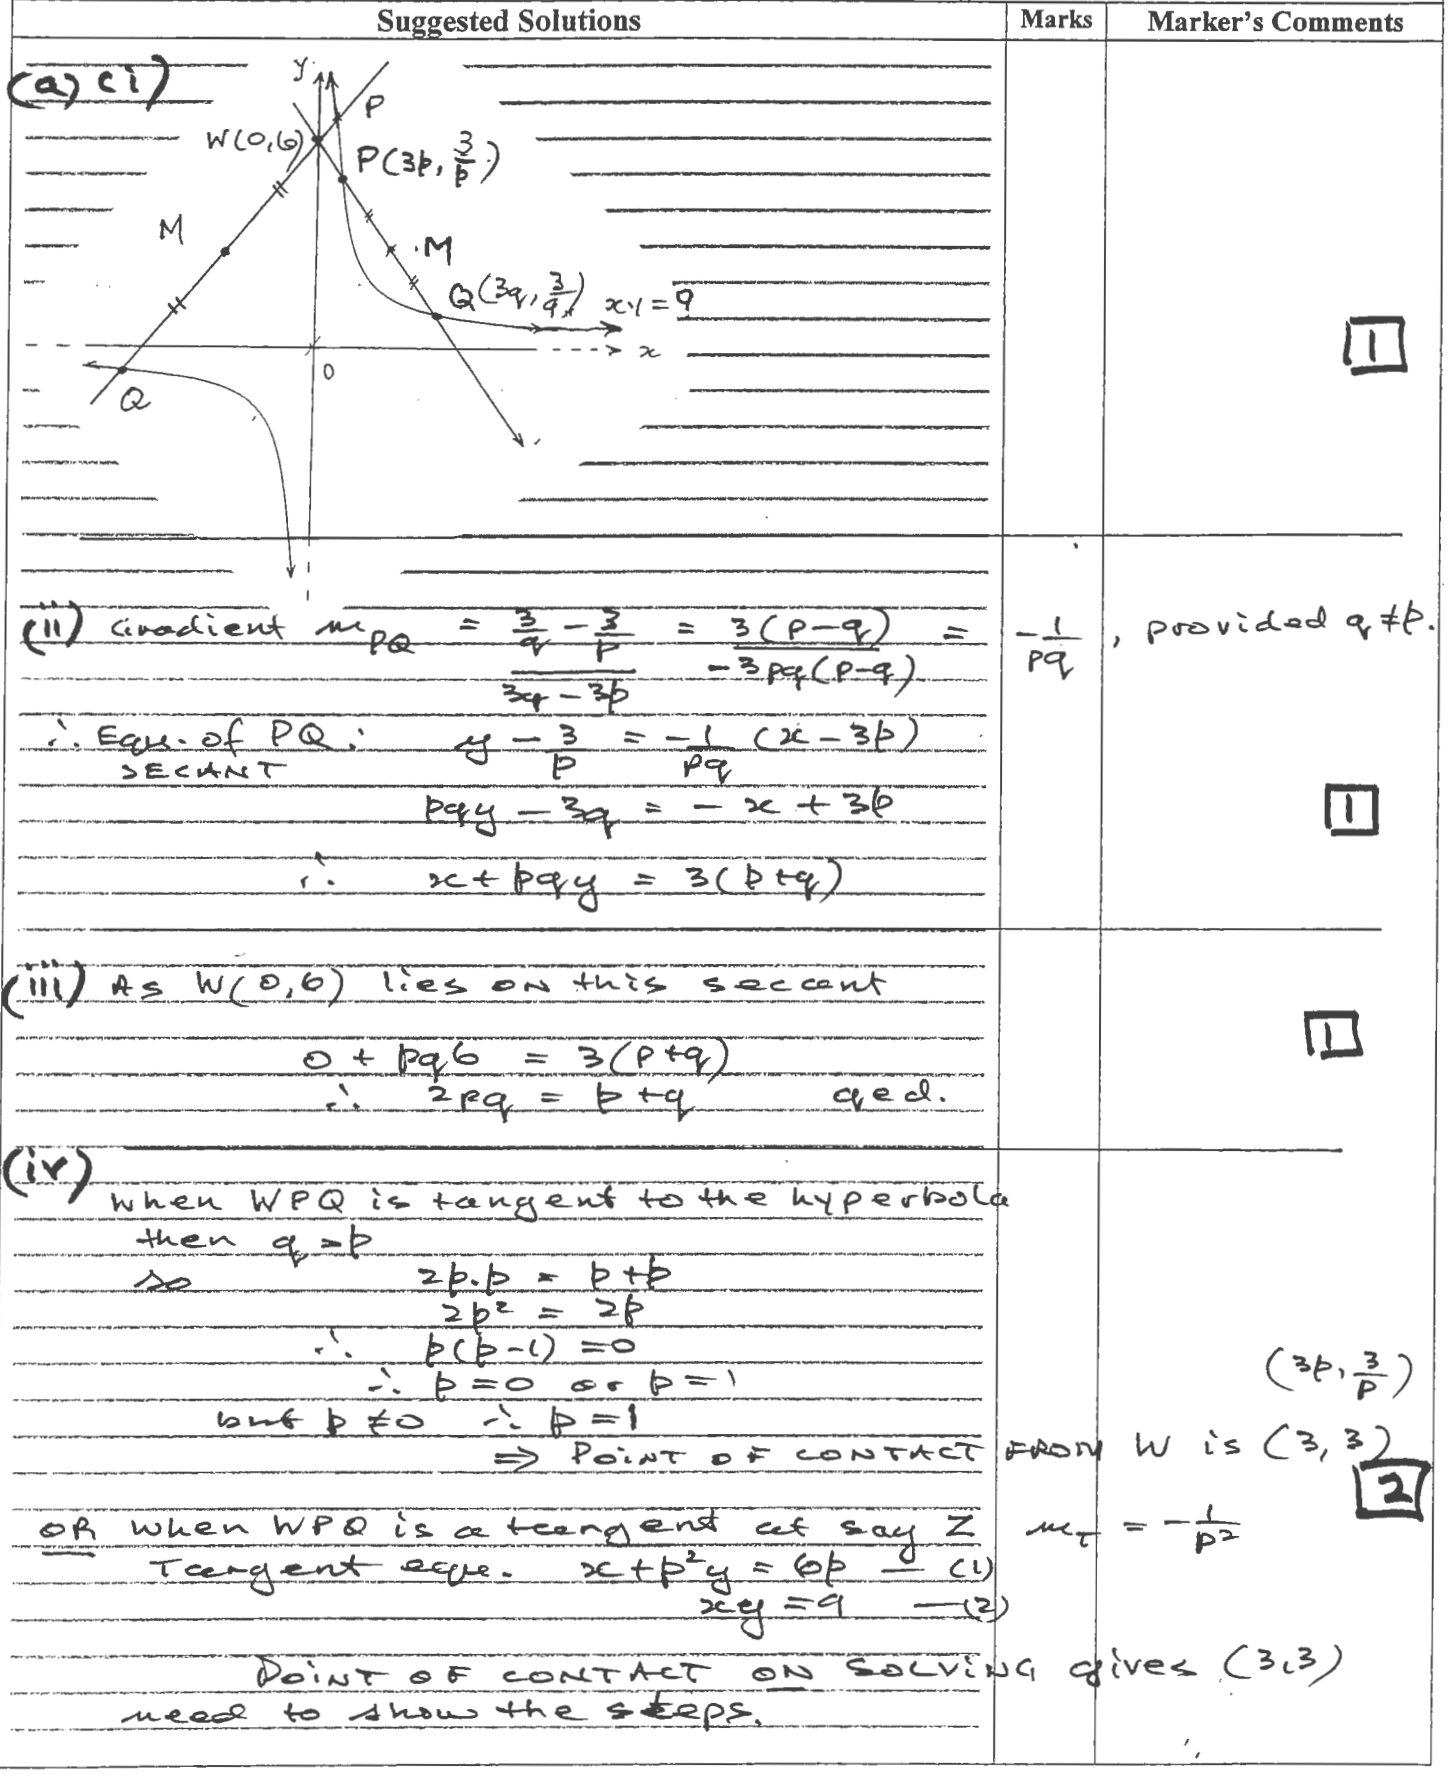 Suggested Solutions Marks Marker's Comments
(a) (i)
y
P
W(0,6)
P(3p, 3/p)
M
M
Q(3q, 3/q) xy = 9
1
x
0
Q
(ii) Gradient m_PQ = (3/q - 3/p)/(3q - 3p) = 3(p-q)/(-3pq(p-q)) = -1/pq, provided q ≠ p.
∴ Eqn. of PQ: y - 3/p = -1/pq (x - 3p)
SECANT
pqy - 3q = - x + 3p
1
∴ x + pqy = 3(p+q)
(iii) As W(0,6) lies on this secant
1
0 + pq6 = 3(p+q)
∴ 2pq = p+q qed.
(iv)
when WPQ is tangent to the hyperbola
then q = p
so 2p.p = p+p
2p² = 2p
∴ p(p-1) = 0
∴ p = 0 or p = 1 (3p, 3/p)
but p ≠ 0 ∴ p = 1
⇒ POINT OF CONTACT FROM W is (3, 3)
2
OR when WPQ is a tangent at say Z m_T = -1/p²
Tangent eqn. x + p²y = 6p — (1)
xy = 9 — (2)
POINT OF CONTACT ON SOLVING gives (3,3)
need to show the steps.